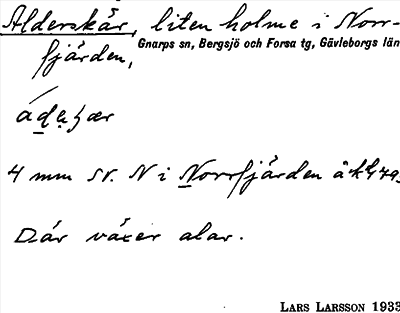 Alderskär, liten holme i Norr-
Gnarps sn, Bergsjö och Forsa tg, Gävleborgs län
fjärden,
4 mm SV. N i Norrfjärden å
Där växer alar.
LARS LARSSON 1933